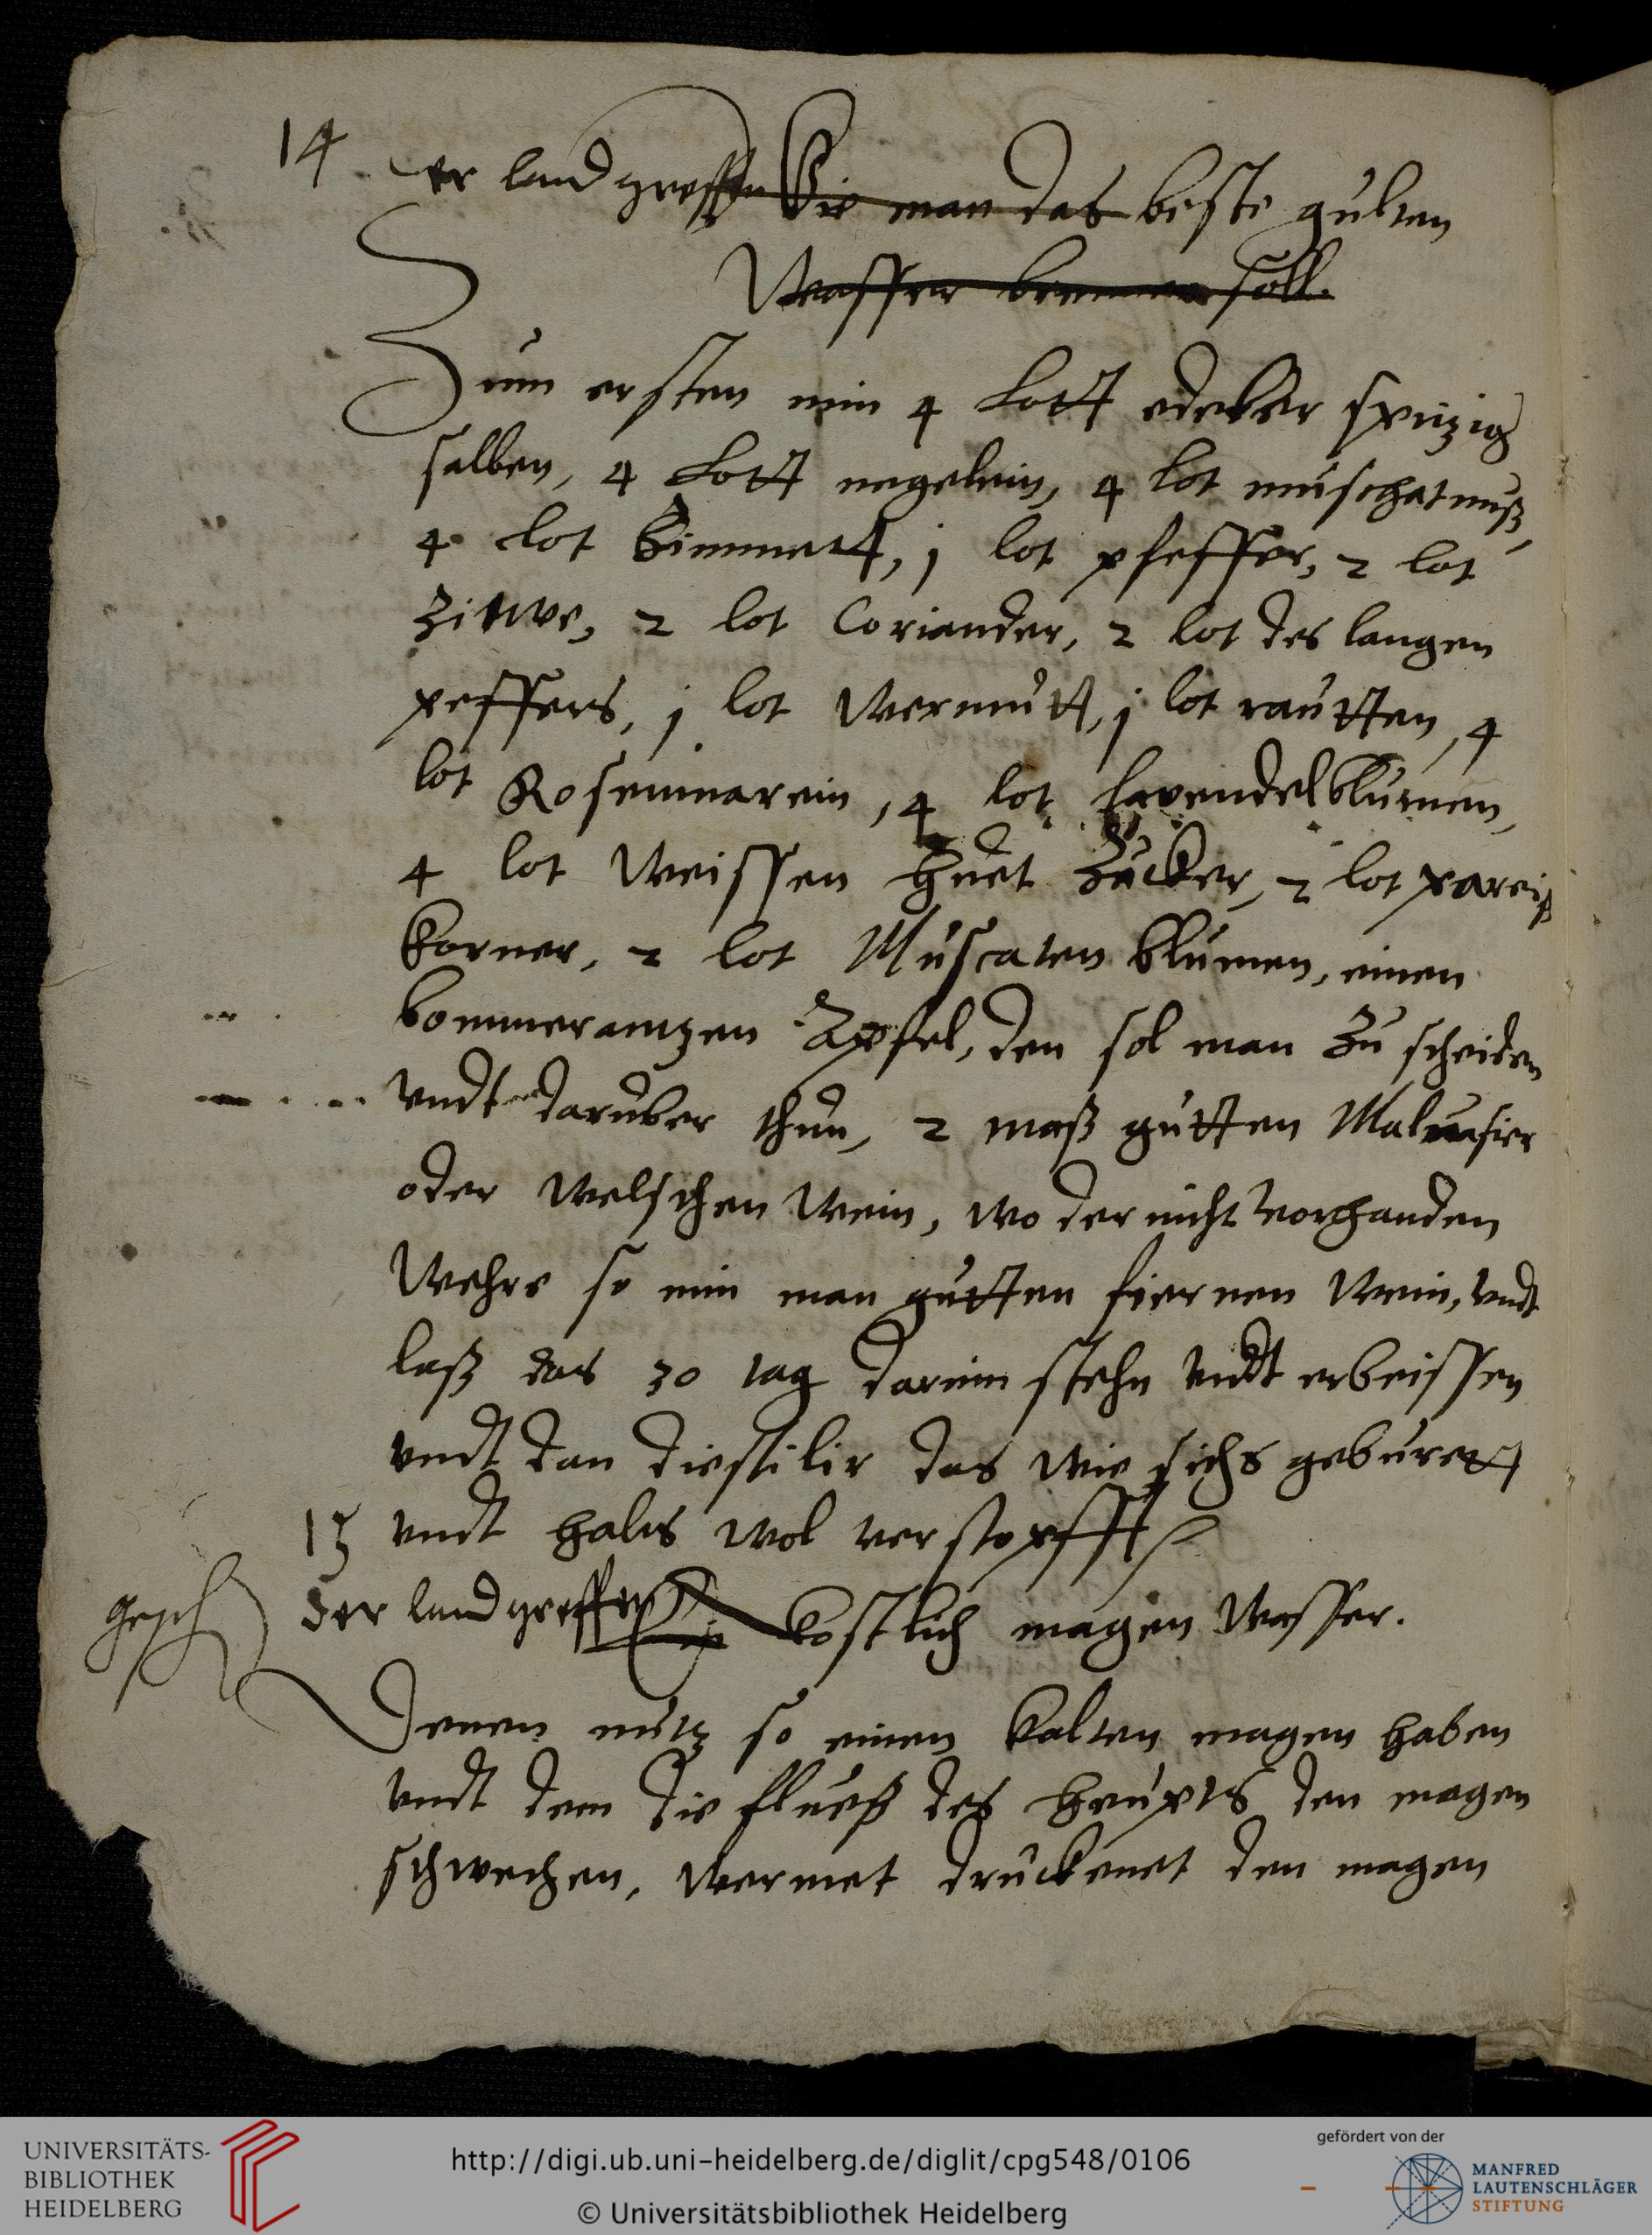 14 der landgreffin Wie man das beste gulten
Wasser brennen soll.
Zum ersten nim 4 Lott edeler spitzig
salben, 4 Lott negelein, 4 lot muschatnuß,
4 lot Zimmett, j lot pfeffer, 2 lot
Zitwe, 2 lot Coriander, 2 lot des langen
peffers, j lot Wermutt, j lot rautten, 4
lot Rosemmarein, 4 lot lavendelblumen,
4 lot Weissen huet Zucker, 2 lot pareiß
korner, 2 lot Muscaten blumen, einen
bommerantzen Apfel, den sol man Zu scheiden
vndt daruber thun, 2 maß gutten Malvasier
oder Welschen Wein, wo der nicht vorhanden
Wehre so nim man gutten fiernen Wein, vndt
laß das 30 tag darinn stehn vndt erbeissen
vndt dan diestilir das wie sichs geburett
vndt halts wol verstopfft
15 der landgreffin Ein kostlich magen Wasser.
Denen nutz so einen kalten magen haben
vndt dem die flueß des heupts den magen
schwechen, wermet druckenet den magen
UNIVERSITÄTS-
BIBLIOTHEK
HEIDELBERG
http://digi.ub.uni-heidelberg.de/diglit/cpg548/0106
© Universitätsbibliothek Heidelberg
gefördert von der
MANFRED
LAUTENSCHLÄGER
STIFTUNG